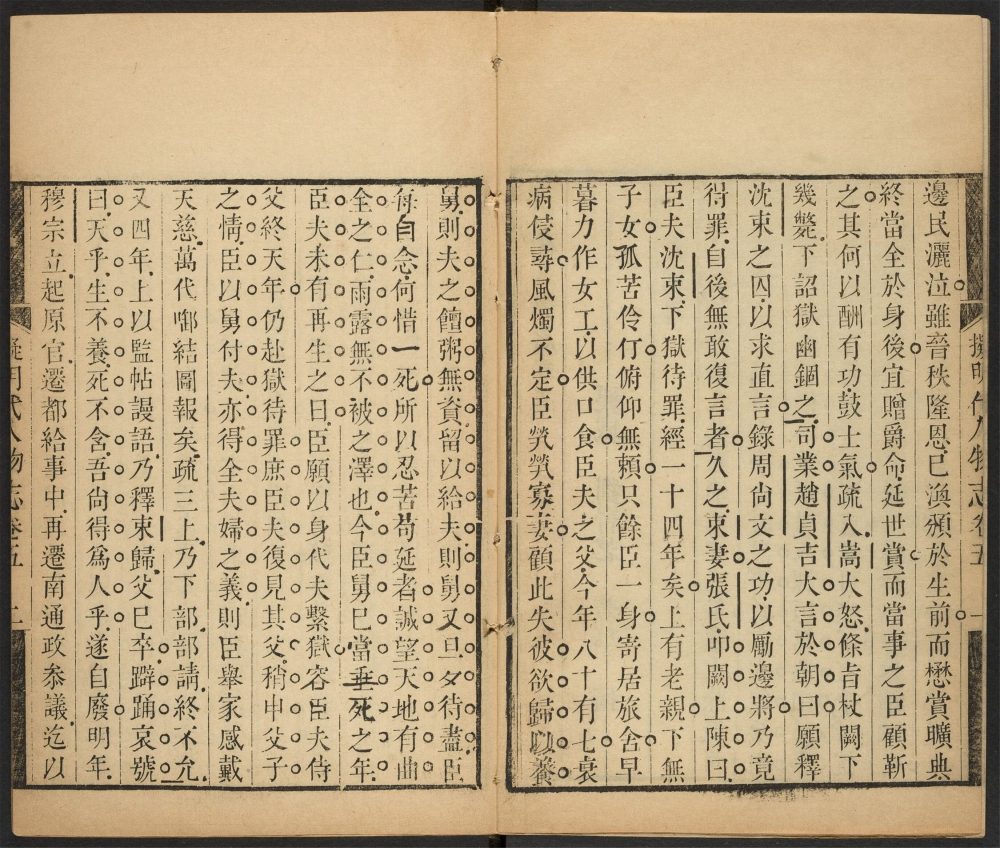 邊民灑泣雖晉秩隆恩巳渙頒於生前而懋賞曠典
終當全於身後宜贈爵命延世賞而當事之臣顧靳
之其何以酬有功鼓士氣疏入嵩大怒條㫖杖闕下
幾斃下詔獄幽錮之司業趙貞吉大言於朝曰願釋
沈束之囚以求直言錄周尚文之功以勵邊將乃竟
得罪自後無敢復言者久之束妻張氏叩闕上陳曰
臣夫沈束下獄待罪經一十四年矣上有老親下無
子女孤苦伶仃俯仰無賴只餘臣一身寄居旅舍早
暮力作女工以供口食臣夫之父今年八十有七衰
病侵尋風燭不定臣煢煢寡妻顧此失彼欲歸以養
舅則夫之饘粥無資留以給夫則舅又旦夕待盡臣
每自念何惜一死所以忍苦苟延者誠望天地有曲
全之仁雨露無不被之澤也今臣舅巳當垂死之年
臣夫未有再生之日臣願以身代夫繫獄容臣夫侍
父終天年仍赴獄待罪庶臣夫復見其父稍申父子
之情臣以舅付夫亦得全夫婦之義則臣舉家感戴
天慈萬代啣結圖報矣疏三上乃下部部請終不允
又四年上以監帖謾語乃釋束歸父巳卒擗踊哀號
曰天乎生不養死不含吾尚得爲人乎遂自廢明年
穆宗立起原官遷都給事中再遷南通政参議迄以
擬明代人物志卷五 一
擬明代人物志卷五 二